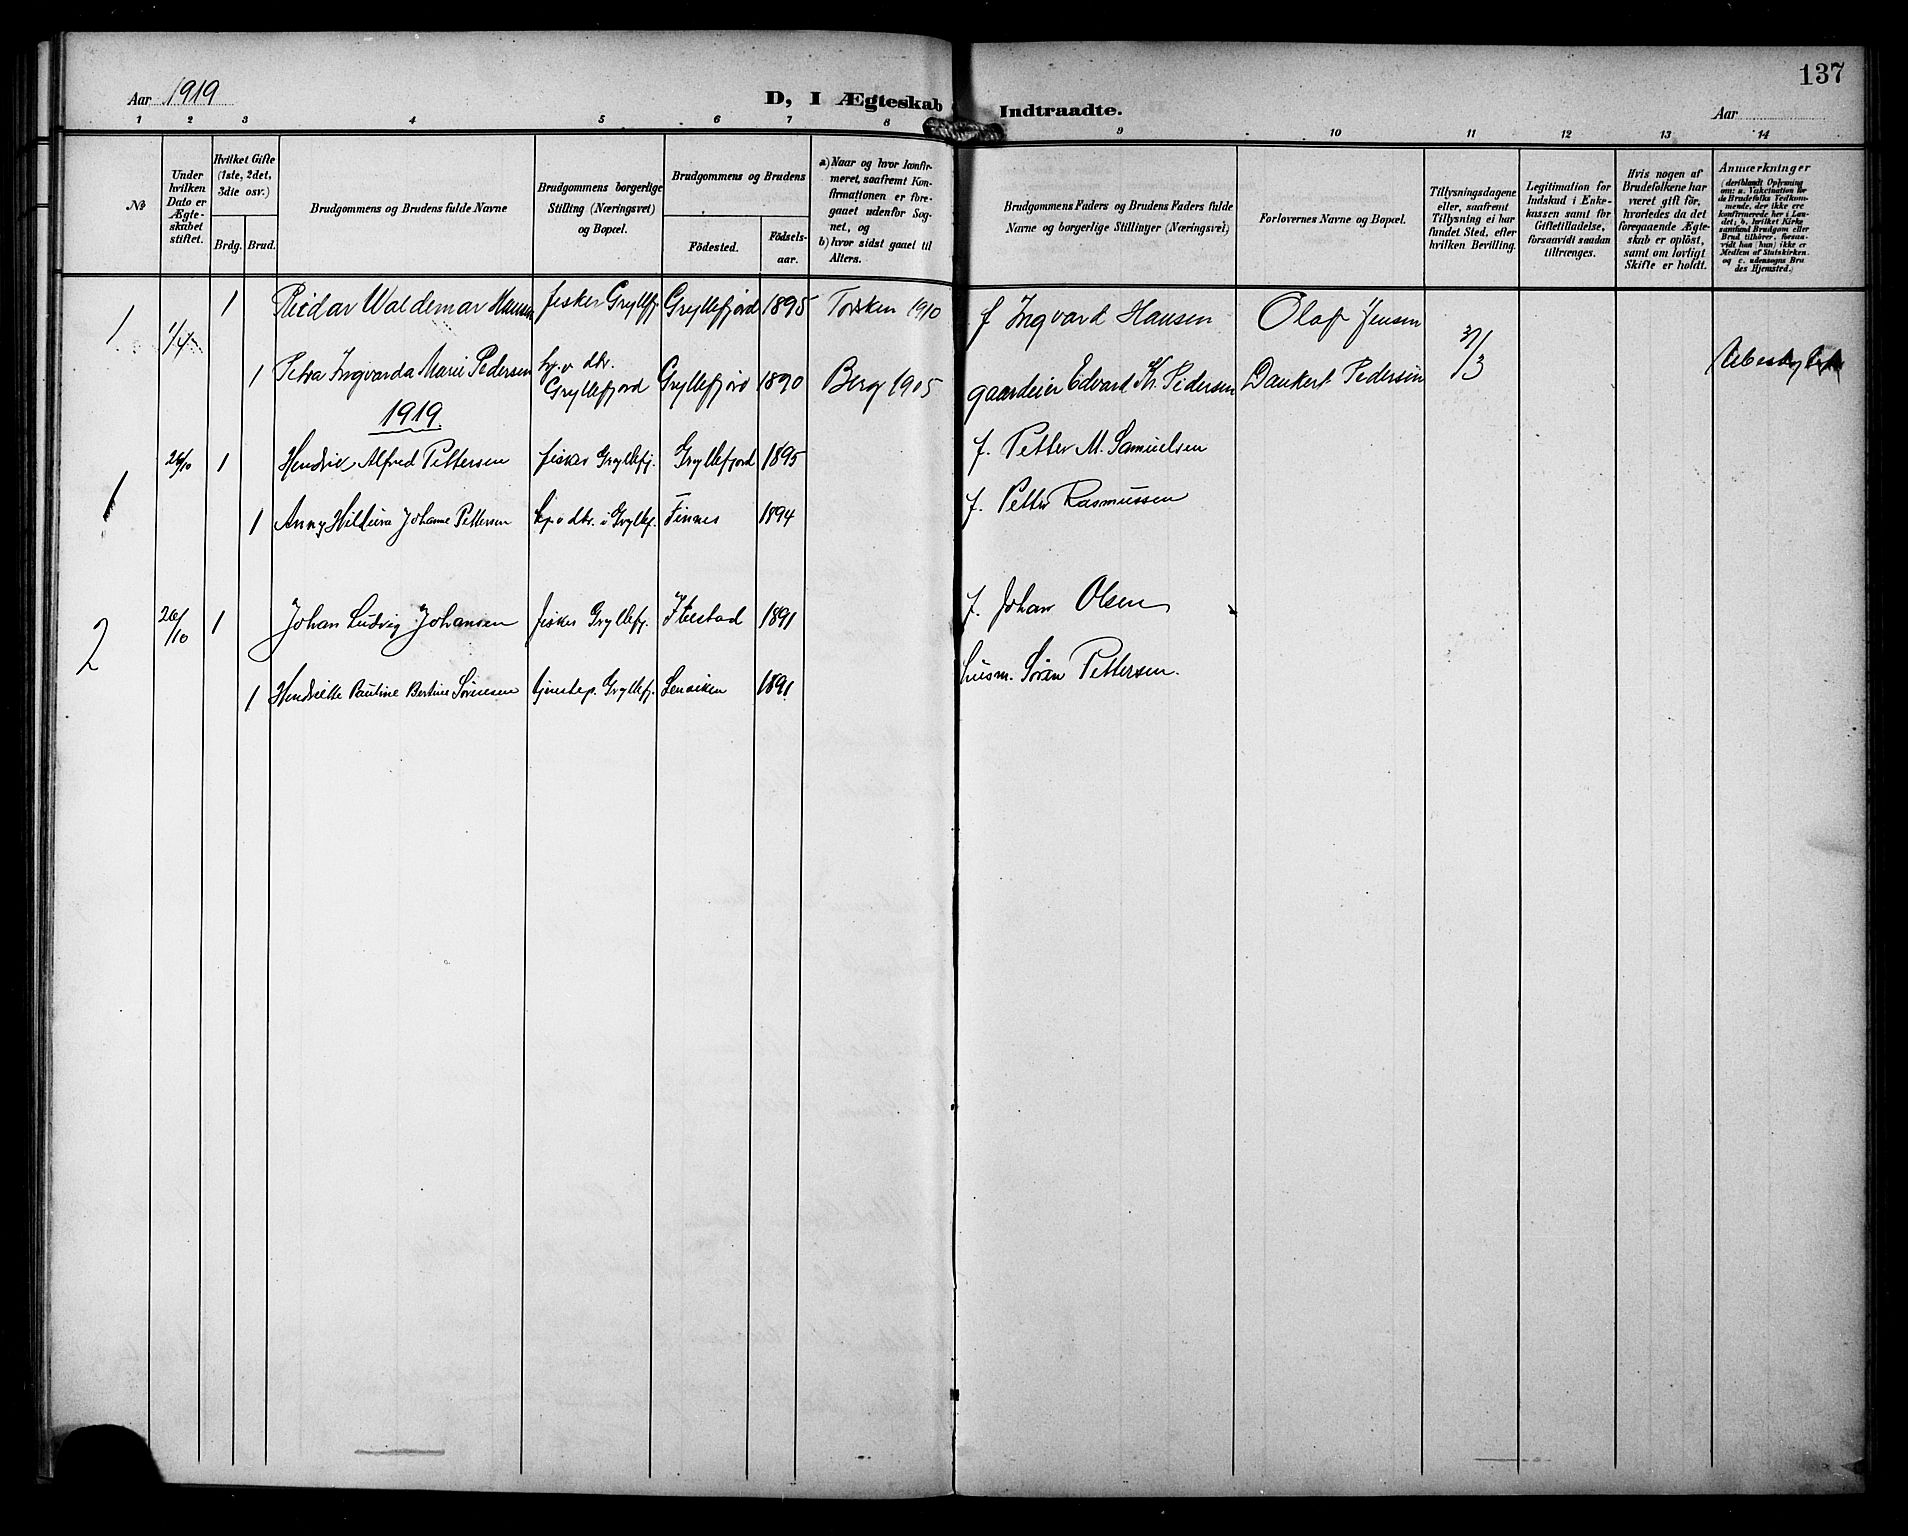 137
Aar 1919 D, I Ægteskab Indtraadte. Aar
1 2 3 4 5 6 7 8 9 10 11 12 13 14
№
Under hvilken Dato er Ægteskabet stiftet.
Hvilket Gifte (1ste, 2det, 3die osv.)
Brdg. Brud.
Brudgommens og Brudens fulde Navne
Brudgommens borgerlige Stilling (Næringsvei) og Bopæl.
Brudgommens og Brudens
Födested. Födselsaar.
a) Naar og hvor konfirmeret, saafremt Konfirmationen er foregaaet udenfor Sognet, og
b) hvor sidst gaaet til Alters.
Brudgommens Faders og Brudens Faders fulde Navne og borgerlige Stillinger (Næringsvei)
Forlovernes Navne og Bopæl.
Tillysningsdagene eller, saafremt Tillysning ei har fundet Sted, efter hvilken Bevilling.
Legitimation for Indskud i Enkekassen samt for Giftetilladelse, forsaavidt saadan tiltrænges.
Hvis nogen af Brudefolkene har været gift för, hvorledes da det foregaaende Ægteskab er oplöst, samt om lovligt Skifte er holdt.
Anmærkninger (deriblandt Oplysning om: a. Vakcination for de Brudefolks Vedkommende, der ikke ere konfirmerede her i Landet; b. hvilket Kirkesamfund Brudgom eller Brud tilhörer, forsaavidt han (hun) ikke er Medlem af Statskirken. og c. udensogns Brudes Hjemsted.)
1 1/4 1 Reidar Waldemar Hansen fisker Gryllefj. Gryllefjord 1895 Torsken 1910 f Ingvard Hansen Olaf Jensen
1 Petra Ingvarda Marie Pedersen hp. v dtr. Gryllefjord Gryllefjord 1890 Berg 1905 gaardeier Edvard Kr. Pedersen Dankert Pedersen /3
1919.
1 26/10 1 Hendrik Alfred Pettersen fisker Gryllefj. Gryllefjord 1895 f. Petter M. Samuelsen
1 Anny Johanne Pettersen dtr. i Gryllef. Finnes 1894 f. Petter Rasmussen
2 26/10 1 Johan Ludvig Johansen fisker Gryllefj. Ibestad 1891 f. Johan Olsen
1 Hendrikke Pauline Bertine Sørensen tjenestep. Gryllefj. Lenviken 1891 husm. Søren Pettersen.